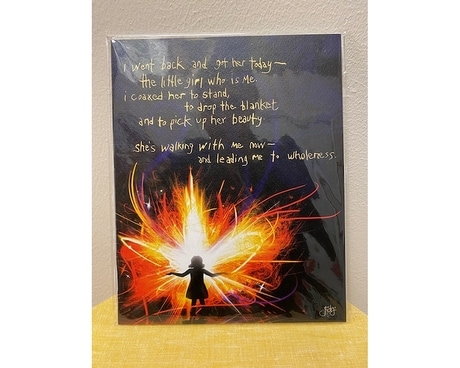 i went back and got her today—
the little girl who is me.
i coaxed her to stand,
to drop the blanket
and to pick up her beauty
she's walking with me now—
and leading me to wholeness.